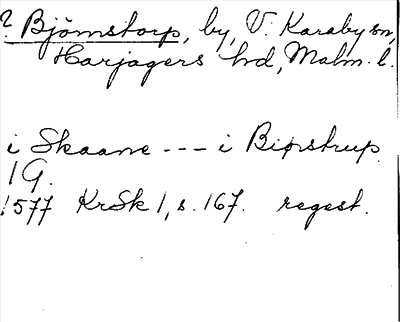 ? Björnstorp, by, V. Karaby sn,
Harjagers hd, Malm. l.
i Skaane --- i Biørstrup
1 G.
1577 KrSk 1, s. 167. regest.